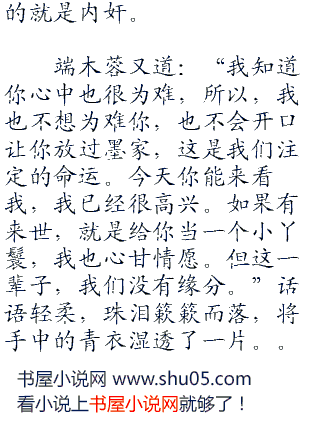 的就是内奸。
端木蓉又道：“我知道
你心中也很为难，所以，我
也不想为难你，也不会开口
让你放过墨家，这是我们注
定的命运。今天你能来看
我，我已经很高兴。如果有
来世，就是给你当一个小丫
鬟，我也心甘情愿。但这一
辈子，我们没有缘分。”话
语轻柔，珠泪簌簌而落，将
手中的青衣湿透了一片。。
书屋小说网 www.shu05.com
看小说上书屋小说网就够了！